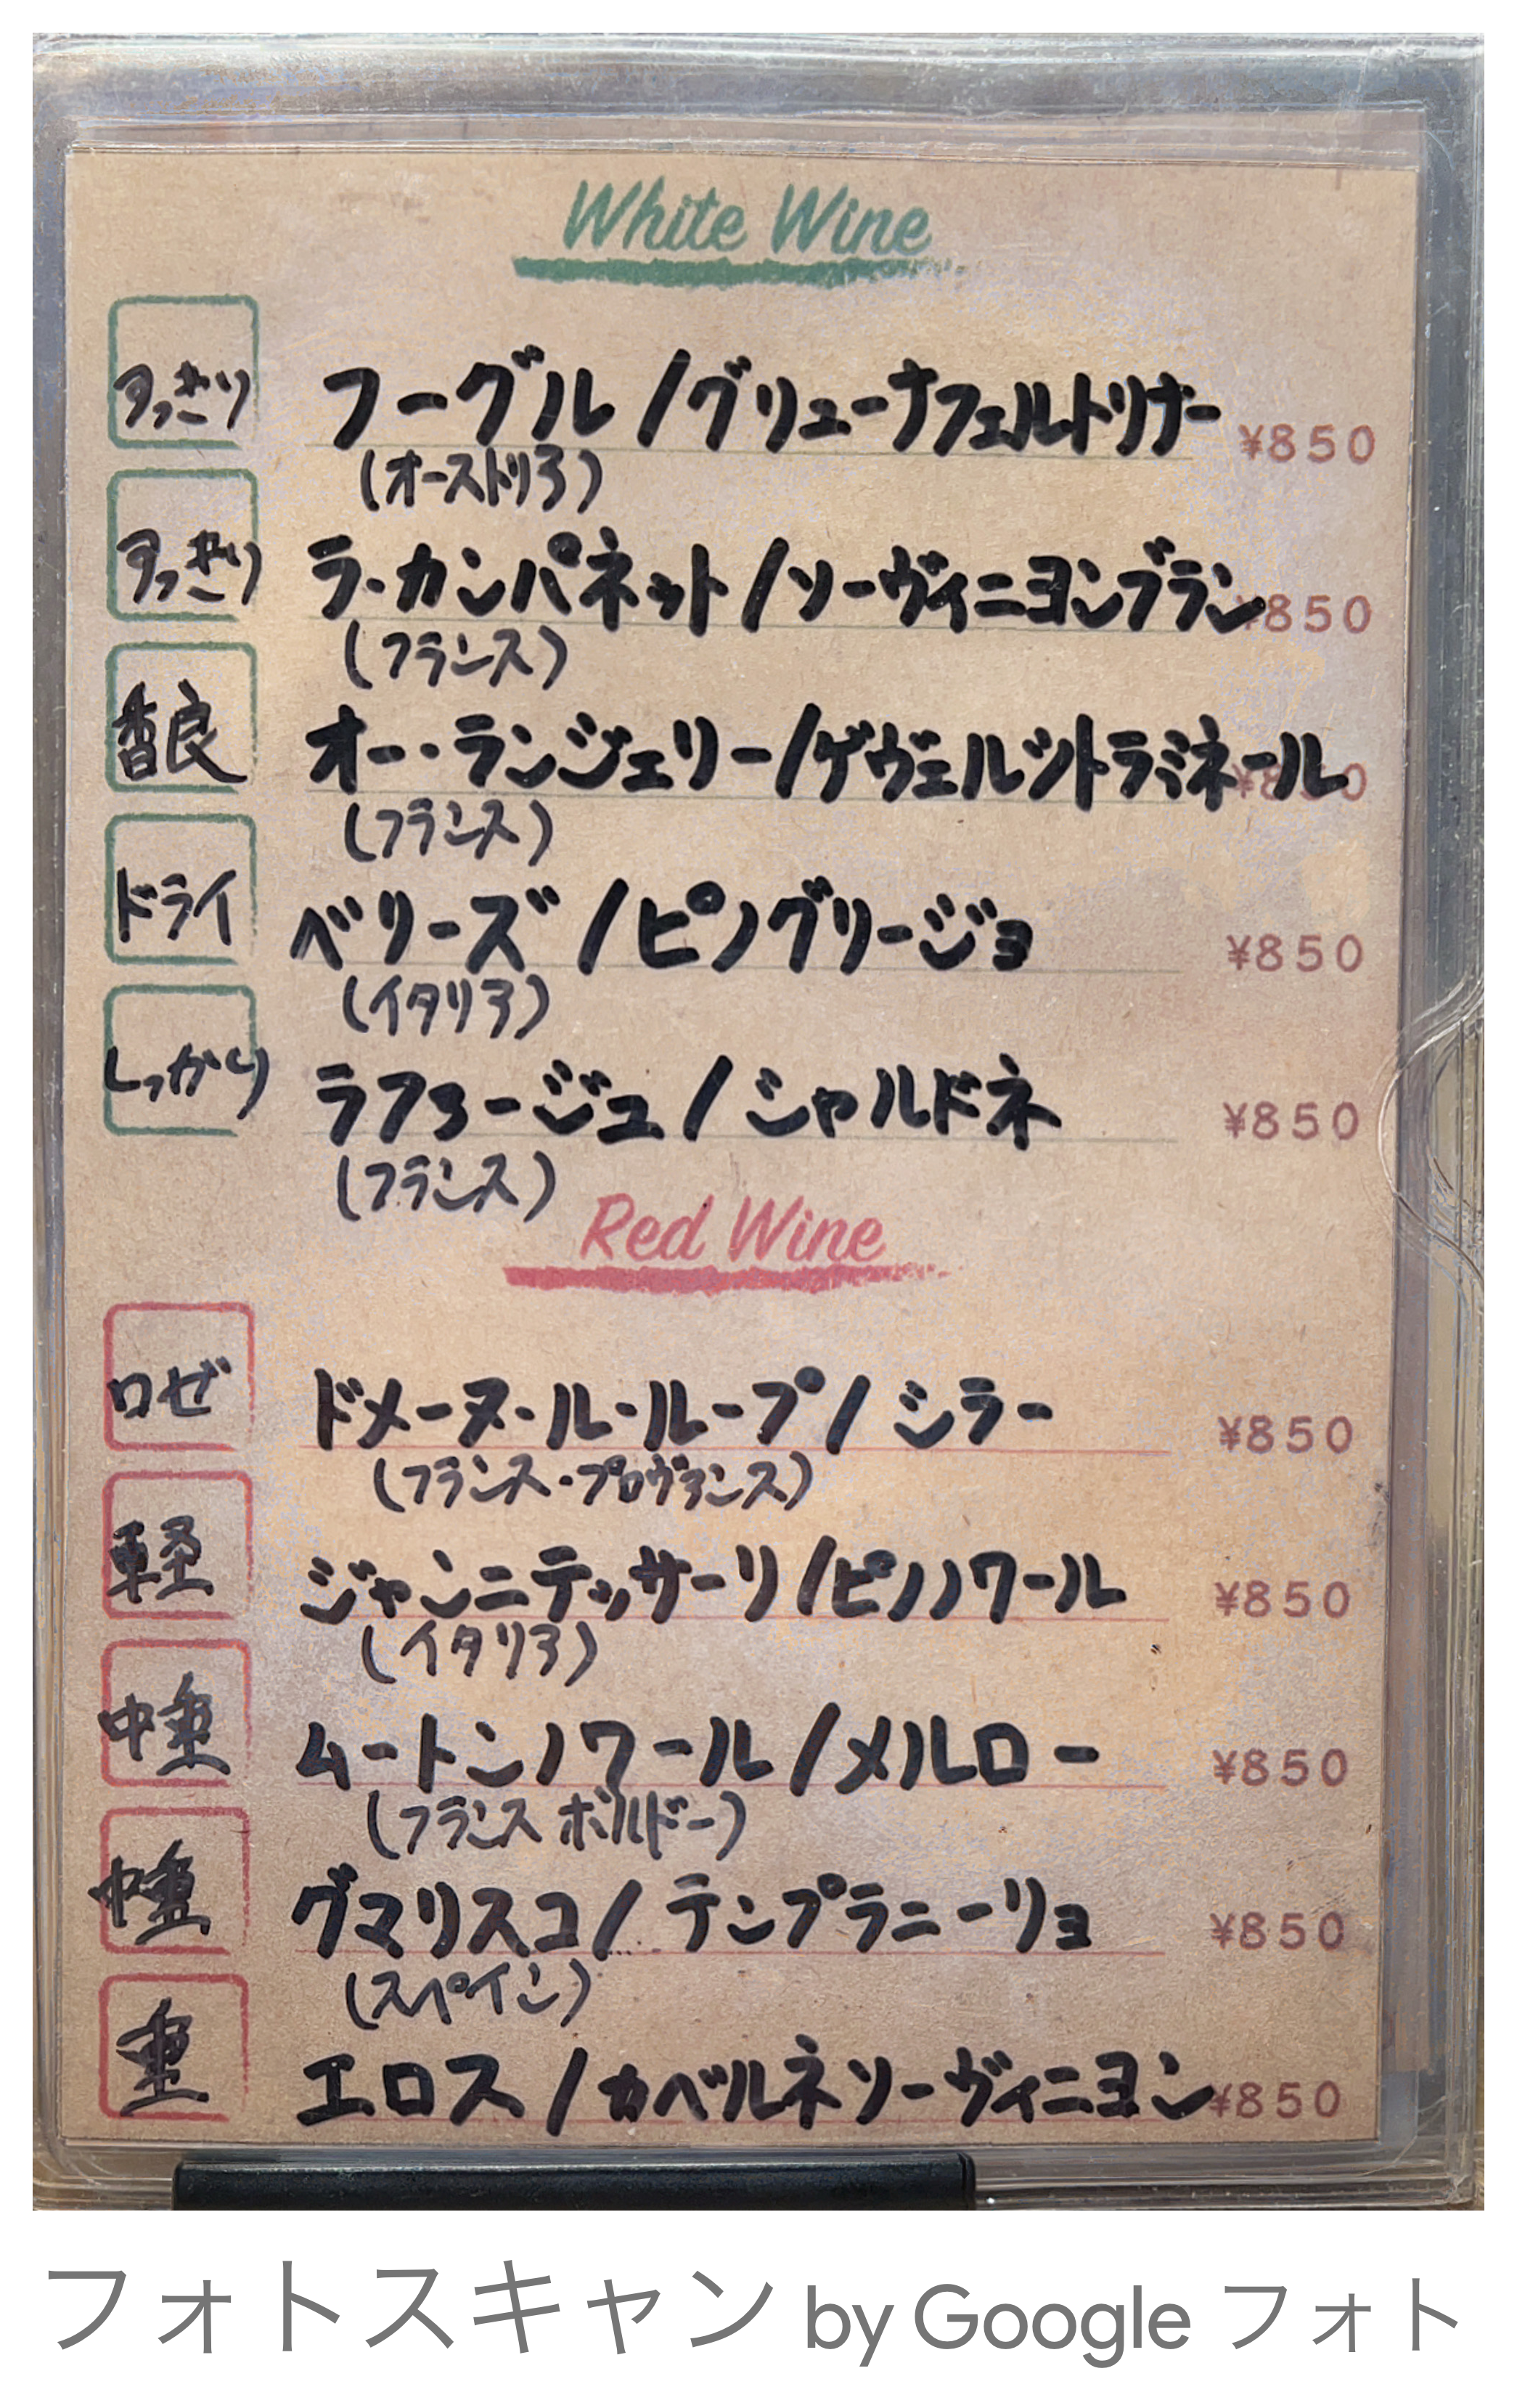 White Wine
すっきり フーグル/グリューナフェルトリナー ¥850
(オーストリア)
すっきり ラ・カンパネット/ソーヴィニヨンブラン ¥850
(フランス)
香良 オー・ランジェリー/ゲヴェルツトラミネール ¥850
(フランス)
ドライ ベリーズ/ピノグリージョ ¥850
(イタリア)
しっかり ラファージュ/シャルドネ ¥850
(フランス)
Red Wine
ロゼ ドメーヌ・ル・ループ/シラー ¥850
(フランス・プロヴァンス)
軽 ジャンニテッサーリ/ピノノワール ¥850
(イタリア)
中重 ムートンノワール/メルロー ¥850
(フランス ボルドー)
中重 グマリスコ/テンプラニーリョ ¥850
(スペイン)
重 エロス/カベルネソーヴィニヨン ¥850
フォトスキャン by Google フォト